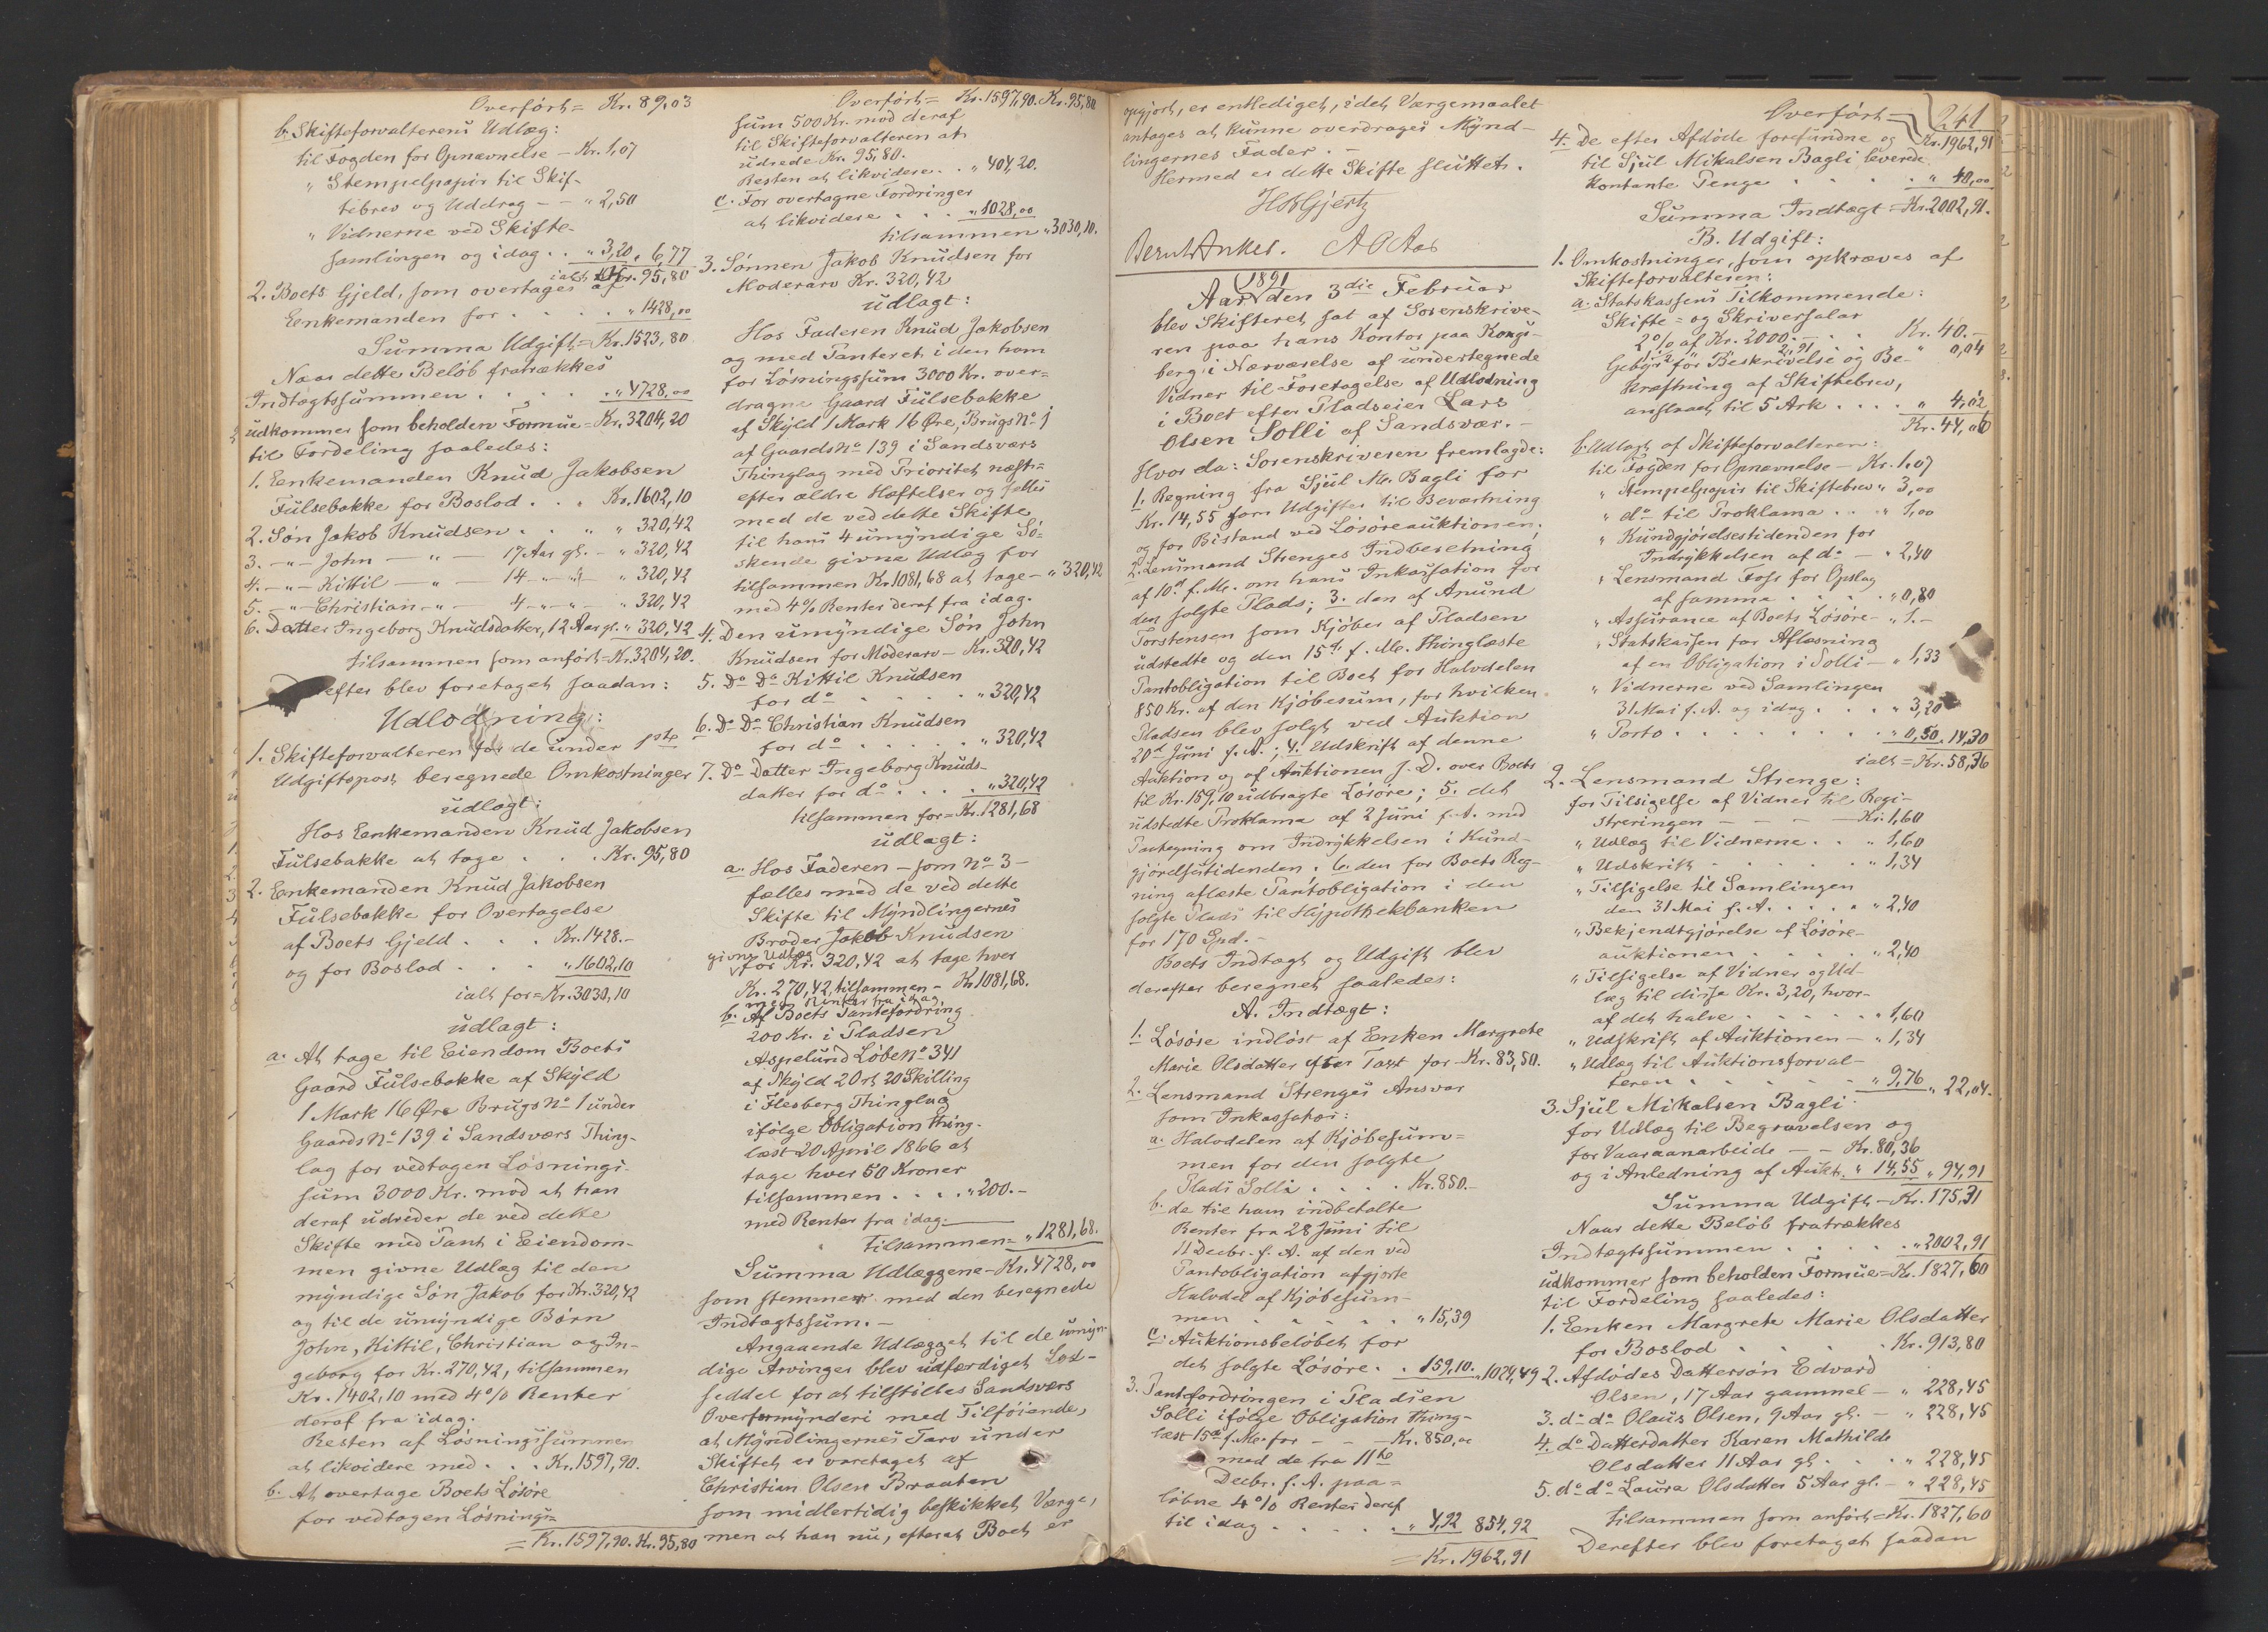 Overført = Kr. 89,03
b. Skifteforvalterens Udlæg:
til Fogden for Opnævnelse – Kr. 1,07
" Stempelpapir til Skif-
tebrev og Uddrag – – " 2,50
" Vidnerne ved Skifte-
samlingen og idag . . " 3,20 " 6,77
ialt Kr. 95,80
2. Boets Gjeld, som overtages af
Enkemanden for . . . . " 1428,00
Summa Udgift = Kr. 1523,80
Naar dette Beløb fratrækkes
Indtægtssummen . . . . " 4728,00
udkommer som beholden Formue = Kr. 3204,20
til Fordeling saaledes:
1. Eenkemanden Knud Jakobsen
Fulsebakke for Boslod . . . Kr. 1602,10
2. Søn Jakob Knudsen . . " " 320,42
3. – " – John – " – 17 Aar gl. – " 320,42
4. – " – Kittil – " – 14 – " – " – " 320,42
5. – " – Christian – " – 4 – " – " – " 320,42
6. Datter Ingeborg Knudsdatter, 12 Aar gl. " 320,42
tilsammen som anført = Kr. 3204,20.
efter blev foretaget saadan:
Udlodning:
1. Skifteforvalteren for de under 1ste
Udgiftspost beregnede Omkostninger
udlagt:
Hos Eenkemanden Knud Jakobsen
Fulsebakke at tage . . . Kr. 95,80
2. Eenkemanden Knud Jakobsen
Fulsebakke for Overtagelse
af Boets Gjeld . . . Kr. 1428.–
og for Boslod . . . " 1602,10
ialt for = Kr. 3030,10
udlagt:
a. At tage til Eiendom Boets
Gaard Fulsebakke af Skyld
1 Mark 16 Øre Brugs No 1 under
Gaards No 139 i Sandsværs Thing-
lag for vedtagen Løsnings-
sum 3000 Kr. mod at han
deraf udreder de ved dette
Skifte med Pant i Eiendom-
men givne Udlæg til den
myndige Søn Jakob for Kr. 320,42
og til de umyndige Børn
John, Kittil, Christian og In-
geborg for Kr. 270,42, tilsammen
Kr. 1402,10 med 4% Renter
deraf fra idag.
Resten af Løsningssummen
at likvidere med . . . Kr. 1597,90.
b. At overtage Boets Løsøre
for vedtagen Løsnings-
= Kr. 1597,90. Kr. 95,80
Overført = Kr. 1597,90. Kr. 95,80
sum 500 Kr. mod deraf
til Skifteforvalteren at
udrede Kr. 95,80.
Resten at likvidere . . " 404,20.
c. For overtagne Fordringer
at likvidere . . . " 1028,00
tilsammen " 3030,10.
3. Sønnen Jakob Knudsen for
Moderarv Kr. 320,42
udlagt:
Hos Faderen Knud Jakobsen
og med Panteret i den ham
for Løsningssum 3000 Kr. over-
dragne Gaard Fulsebakke
af Skyld 1 Mark 16 Øre, Brugs No 1
af Gaards No 139 i Sandsværs
Thinglag med Prioritet næst-
efter ældre Hæftelser og fælles
med de ved dette Skifte
til hans 4 umyndige Sø-
skende givne Udlæg for
tilsammen Kr. 1081,68 at tage – " 320,42
med 4% Renter deraf fra idag.
4. Den umyndige Søn John
Knudsen for Moderarv – Kr. 320,42
5. Do Do Kittil Knudsen
for do . . . . " 320,42
6. Do Do Christian Knudsen
for do . . . . " 320,42
7. Do Datter Ingeborg Knuds-
datter for do . . . . " 320,42
tilsammen for = Kr. 1281,68
udlagt:
a. Hos Faderen – som No 3 –
fælles med de ved dette
Skifte til Myndlingernes
Broder Jakob Knudsen
givne Udlæg
for Kr. 320,42 at tage hver
Kr. 270,42, tilsammen – Kr. 1081,68.
med Renter fra idag.
b. Af Boets Pantefordring
200 Kr. i Pladsen
Aspelund Løbe No 341
af Skyld 2 Ort 20 Skilling
i Flesberg Thinglag
ifølge Obligation thing-
læst 20 April 1866 at
tage hver 50 Kroner
tilsammen . . . . " 200.–
med Renter fra idag.
tilsammen = " 1281,68.
Summa Udlæggene – Kr. 4728,00
som stemmer med den beregnede
Indtægtssum. –
Angaaende Udlægget til de umyn-
dige Arvinger blev udfærdiget Lod-
seddel for at tilstilles Sandsværs
Overformynderi med Tilføiende,
at Myndlingernes Tarv under
Skiftet er varetaget af
Christian Olsen Braaten
som midlertidig beskikket Værge,
men at han nu, efterat Boet er
opgjort, er entlediget, idet Værgemaalet
antages at kunne overdrages Mynd-
lingernes Fader. –
Hermed er dette Skifte sluttet.
Bernt Anker. A O Aas
1891
Aar den 3die Februar
blev Skifteret sat af Sorenskrive-
ren paa hans Kontor paa Kongs-
berg i Nærværelse af undertegnede
Vidner til Foretagelse af Udlodning
i Boet efter Pladseier Lars
Olsen Solli af Sandsvær. –
Hvor da: Sorenskriveren fremlagde:
1. Regning fra Sjul M. Bagli for
Kr. 14,55 som Udgifter til Beværtning
og for Bistand ved Løsøreauktionen;
2. Lensmand Strenges Indberetning
af 10de f. M. om hans Inkassation for
den solgte Plads; 3. den af Anund
Torstensen som Kjøber af Pladsen
udstedte og den 15de f. M. thinglæste
Pantobligation til Boet for Halvdelen
850 Kr. af den Kjøbesum, for hvilken
Pladsen blev solgt ved Auktion
20de Juni f. A.; 4. Udskrift af denne
Auktion og af Auktionen s. D. over Boets
til Kr. 159,10 udbragte Løsøre; 5. det
udstedte Proklama af 2 Juni f. A. med
Paategning om Indrykkelsen i Kund-
gjørelsestidenden; 6. den for Boets Reg-
ning aflæste Pantobligation i den
solgte Plads til Hypothekbanken
for 170 Spd. –
Boets Indtægt og Udgift blev
derefter beregnet saaledes:
A. Indtægt:
1. Løsøre indløst af Enken Margrete
Marie Olsdatter efter Taxt for – Kr. 83,50.
2. Lensmand Strenges Ansvar
som Inkassator:
a. Halvdelen af Kjøbesum-
men for den solgte
Plads Solli . . . . Kr. 850.–
b. de til ham indbetalte
Renter fra 28 Juni til
11 Decbr. f. A. af den ved
Pantobligation afgjorte
Halvdel af Kjøbesum-
men . . . . . " 15,39
c. Auktionsbeløbet for
det solgte Løsøre . . 159,10. " 1024,49
3. Pantefordringen i Pladsen
Solli ifølge Obligation thing-
læst 15de f. M. for – – – Kr. 850,00
med de fra 11te
Decbr. f. A. paa-
løbne 4% Renter deraf
til idag . . . . . " 4,92 854,92
= Kr. 1962,91
241
Overført = Kr. 1962,91
4. De efter Afdøde forefundne og
til Sjul Mikalsen Bagli leverede
kontante Penge . . . . " 40,00
Summa Indtægt = Kr. 2002,91.
B. Udgift:
1. Omkostninger, som opkræves af
Skifteforvalteren:
a. Statskassens Tilkommende:
Skifte- og Skriversalar
2% af Kr. 2000.– . . . Kr. 40.–
1 1/2 " " 2,91 . . " 0,04
Gebyr for Beskrivelse og Be-
kræftning af Skiftebrev,
anslaaet til 5 Ark . . . . " 4,02
Kr. 44,06
b. Udlagt af Skifteforvalteren:
til Fogden for Opnævnelse – Kr. 1,07
" Stempelpapir til Skiftebrev " 3,00
" do til Proklama . . " 1,00
" Kundgjørelsestidenden for
Indrykkelsen af do – " 2,40
" Lensmand Foss for Opslag
af samme . . . . " 0,80
" Assurance af Boets Løsøre – " 1.–
" Statskassen for Aflæsning
af en Obligation i Solli – " 1,33
" Vidnerne ved Samlingen
31 Mai f. A. og idag . . . " 3,20
" Porto . . . . . . . . " 0,50 " 14,30
ialt = Kr. 58,36
2. Lensmand Strenge:
for Tilsigelse af Vidner til Regi-
streringen – – – – Kr. 1,60
" Udlæg til Vidnerne . . " 1,60
" Udskrift . . . . . " 1,34
" Tilsigelse til Samlingen
den 31 Mai f. A. . . . . " 2,40
" Bekjendtgjørelse af Løsøre-
auktionen . . . . . " 2,40
" Tilsigelse af Vidner og Ud-
læg til disse Kr. 3,20, hvor-
af det halve . . . . . " 1,60
" Udskrift af Auktionen – " 1,34
" Udlæg til Auktionsforval-
teren . . . . . . " 9,76 " 22,04.
3. Sjul Mikalsen Bagli
for Udlæg til Begravelsen og
for Vaaraanarbeide – – Kr. 80,36
og i Anledning af Aukt. " 14,55 " 94,91
Summa Udgift – Kr. 175,31
Naar dette Beløb fratrækkes
Indtægtssummen . . . . " 2002,91
udkommer som beholden Formue = K. 1827,60
til Fordeling saaledes:
1. Enken Margrete Marie Olsdatter
for Boslod . . . . . Kr. 913,80
2. Afdødes Dattersøn Edvard
Olsen, 17 Aar gammel – " 228,45
3. do do Olaus Olsen, 9 Aar gl. – " 228,45
4. do Datterdatter Karen Mathilde
Olsdatter 11 Aar gl. . . . " 228,45
5. do do Laura Olsdatter 5 Aar gl. – " 228,45
tilsammen som anført = Kr. 1827,60
Derefter blev foretaget saadan